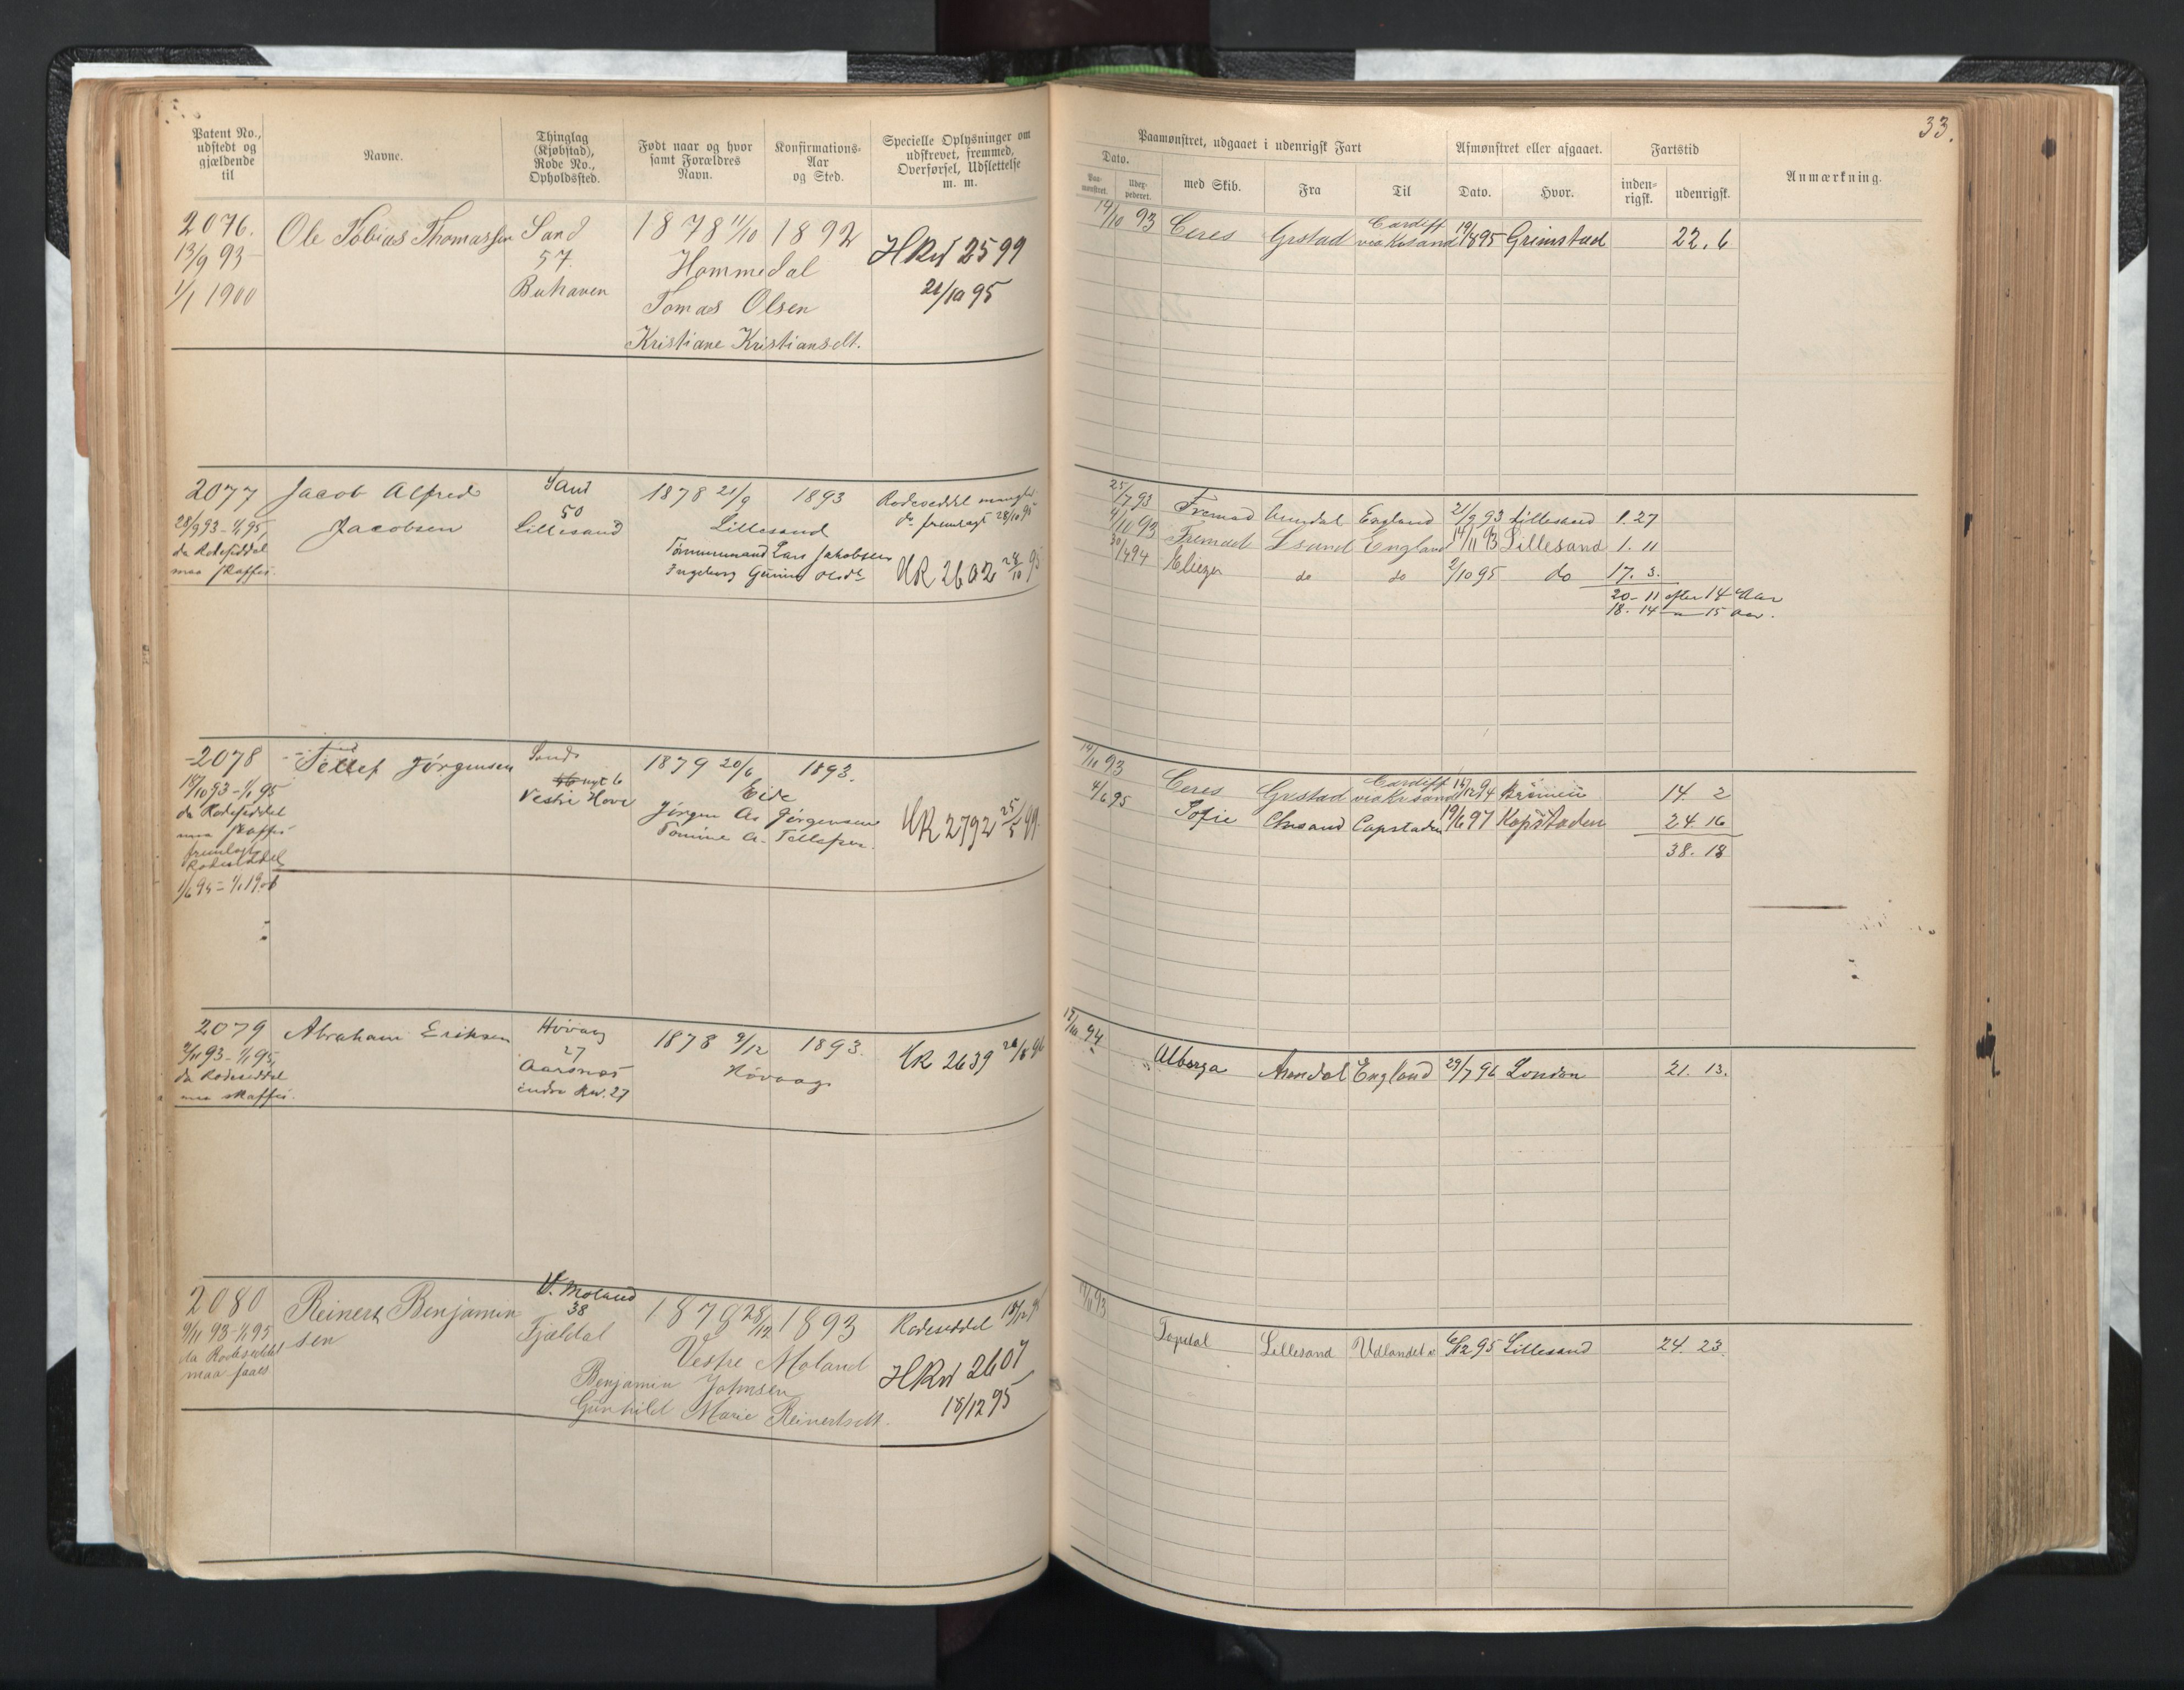 33.
Patent No., udstedt og gjældende til
Navne.
Thinglag (Kjøbstad), Rode No., Opholdssted.
Født naar og hvor samt Forældres Navn.
Konfirmations-Aar og Sted.
Specielle Oplysninger om udskrevet, fremmed, Overførsel, Udslettelse m. m.
Paamønstret, udgaaet i udenrigsk Fart
Afmønstret eller afgaaet.
Fartstid
Anmærkning.
Dato.
med Skib.
Fra
Til
Dato.
Hvor.
inden-rigsk.
udenrigsk.
2076.
13/9 93
1/1 1900
Ole Tobias Thomassen
Sand
57.
Buhaven
1878 11/10 1892
Hommedal
Tomas Olsen
Kristiane Kristiansdt.
HRul 2599
21/10 95
14/10 93 Ceres Grstad Cardiff via Krsand 19/8 95 Grimstad 22. 6
2077
28/9 93 - 1/1 95,
da Rodeseddel
maa skaffes.
Jacob Alfred
Jacobsen
Sand
50
Lillesand
1878 21/9 1893
Lillesand
Tømmermand Lars Jakobsen
Ingeborg
Rodeseddel mangler
do fremlagt 28/10 95
HR 2602 28/10 95
25/7 93 Fremad Arendal England 21/9 93 Lillesand 1. 27
4/10 93 Fremad Lsand England 14/11 93 Lillesand 1. 11
30/4 94 Eliezer do do 2/10 95 do 17. 3.
20 - 11 efter 14 Aar
18. 14 — " — 15 Aar.
2078
18/10 93 - 1/1 95
da Rodeseddel
maa skaffes
fremlagt
Rodeseddel
Tellef Jørgensen
Sand
46 nyt 6
Vestre
1879 20/6 1893.
Eide
Jørgen As Jørgensen
Tomine A. Tellefsen.
HR 2792 25/5 99.
14/11 93 Ceres Grstad Cardiff via Krsand 14/12 94 14. 2
4/6 95 Sofie Chrsand Capstaden 19/6 97 Kapstaden 24. 16
38. 18
2079
2/11 93 - 1/1 95,
da Rodeseddel
maa skaffes.
Abraham Eriksen
Høvaag
27
Aarsnæs
indre Rw. 27
1878 9/12 1893.
Høvaag
HR 2639 26/8 96
94 Alberga Arendal England 29/7 96 London 21. 13.
2080
9/11 93 - 1/1 95
da Rodeseddel
maa faaes
Reinert Benjamin
sen
V. Moland
38
Tjældal
1878 28/12 1893
Vestre Moland
Benjamin Johnsen
Gunhild Marie Reinertsdt.
Rodeseddel 18/12 95
HRul 2607
18/12 95
11/11 93 Topdal Lillesand Udlandet 6/12 95 Lillesand 24. 23.